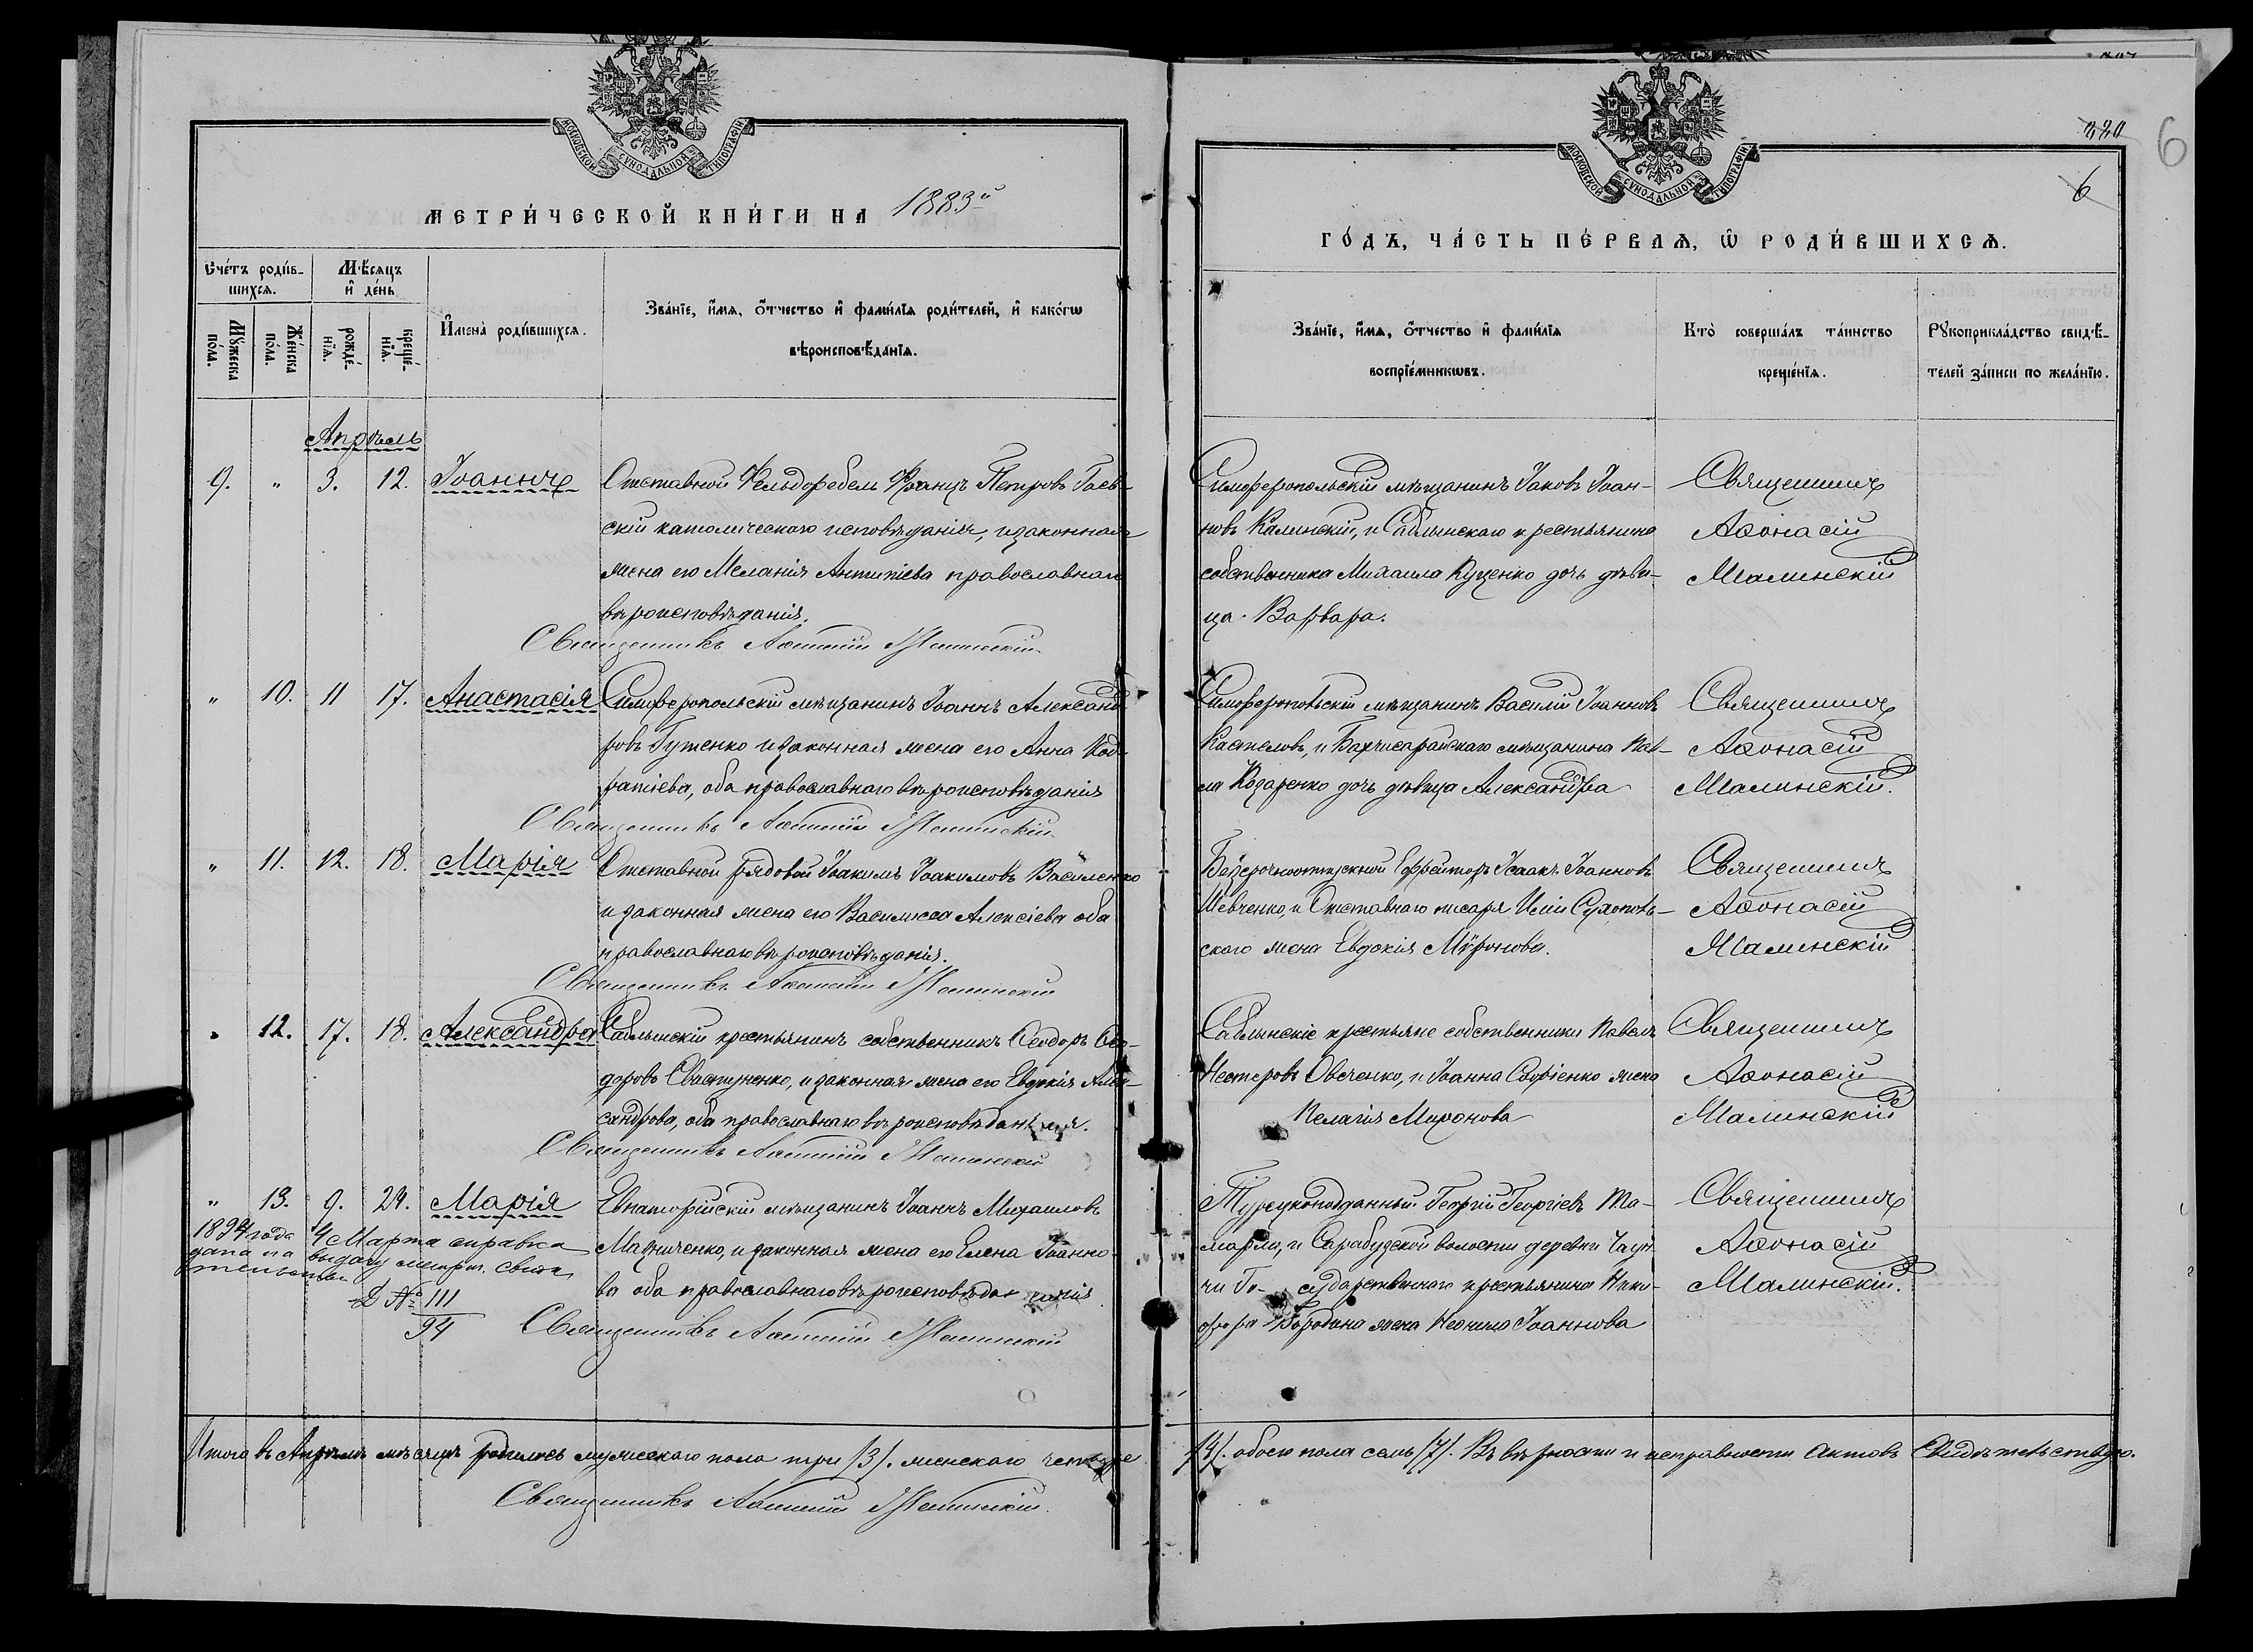 МОСКОВСКОЙ СѴНОДАЛЬНОЙ ТИПОГРАФІИ
МЕТРИ́ЧЕСКОЙ КНИ́ГИ НА 1883й
Сче́тъ роди́в-
шихсѧ.
Мѣ́сяцъ
и҆ де́нь
Мꙋ́жеска
по́ла.
Же́нска
по́ла.
рожде́-
нїѧ.
креще́-
нїѧ.
И҆мена̀ роди́вшихсѧ.
Зва́нїе, и҆́мѧ, ѻ҆́тчество и҆ фами́лїѧ роди́телей, и҆ како́гѡ
вѣроисповѣ́данїѧ.
Апрѣль
9. " 3. 12. Іоаннъ
Отставной Фельдфебель Францъ Петровъ Гаев-
скій католическаго исповѣданія, и законная
жена его Меланія Антипіева православнаго
вѣроисповѣданія.
Священникъ Аѳонасій Малинскій
" 10. 11 17. Анастасія
Симферопольскій мѣщанинъ Іоаннъ Александ-
ровъ Гутенко и законная жена его Анна Код-
ратіева, оба православнаго вѣроисповѣданія
Священникъ Аѳонасій Малинскій
" 11. 12. 18. Марія
Отставной рядовой Іоакимъ Іоакимовъ Василенко
и законная жена его Василисса Алексіева оба
православнаго вѣроисповѣданія.
Священникъ Аѳонасій Малинскій
" 12. 17. 18. Александра
Саблынскій крестьянинъ собственникъ Ѳеодоръ Ѳео-
доровъ Свастуненко, и законная жена его Евдокія Алек-
сандрова, оба православнаго вѣроисповѣданія.
Священникъ Аѳонасій Малинскій
" 13. 9. 24. Марія
Евпаторійскій мѣщанинъ Іоаннъ Михаиловъ
Махниченко, и законная жена его Елена Іоанно-
ва оба православнаго вѣроисповѣданія
Священникъ Аѳонасій Малинскій
1894 года 4 Марта справка
дана на выдачу метрич. свидѣ
тельства
Д № 111
94
Итого въ Апрѣлѣ мѣсяцѣ родилось мужескаго пола три /3/. женскаго четыре
Священникъ Аѳонасій Малинскій.
МОСКОВСКОЙ СѴНОДАЛЬНОЙ ТИПОГРАФІИ
320
6
6
ГО́ДЪ, ЧА́СТЬ ПЕ́РВАѦ, Ѽ РОДИ́ВШИХСѦ.
Зва́нїе, и҆́мѧ, ѻ҆́тчество и҆ фами́лїѧ
воспрїе́мникѡвъ.
Кто̀ соверша́лъ та́инство
креще́нїѧ.
Рꙋкоприкла́дство свидѣ́-
телей за́писи по жела́нїю.
Симферопольскій мѣщанинъ Іаковъ Іоан-
новъ Калинскій, и Саблынскаго крестьянина
собственника Михаила Куценко дочь дѣви-
ца Варвара.
Священникъ
Аѳонасій
Малинскій
Симферопольскій мѣщанинъ Василій Іоанновъ
Кастеловъ, и Бахчисарайскаго мѣщанина Пав-
ла Козаренко дочь дѣвица Александра
Священникъ
Аѳонасій
Малинскій.
Безсрочноотпускной Ефрейторъ Исаакъ Іоанновъ
Шевченко, и Отставнаго писаря Иліи Сухополь-
скаго жена Евдокія Мѵронова.
Священникъ
Аѳонасій
Малинскій
Саблынскіе крестьяне собственники Павелъ
Нестеровъ Овсченко, и Іоанна Софіенко жена
Пелагія Миронова
Священникъ
Аѳонасій
Малинскій
Турецкоподданный Георгій Георгіевъ Та-
марли, и Сарабузской волости деревни
чи Государственнаго крестьянина Ники-
фора Бородина жена Неонила Іоаннова
Священникъ
Аѳонасій
Малинскій.
/4/. обоего пола семь /7/. Въ вѣрности и исправности актовъ Свидѣтельствую.